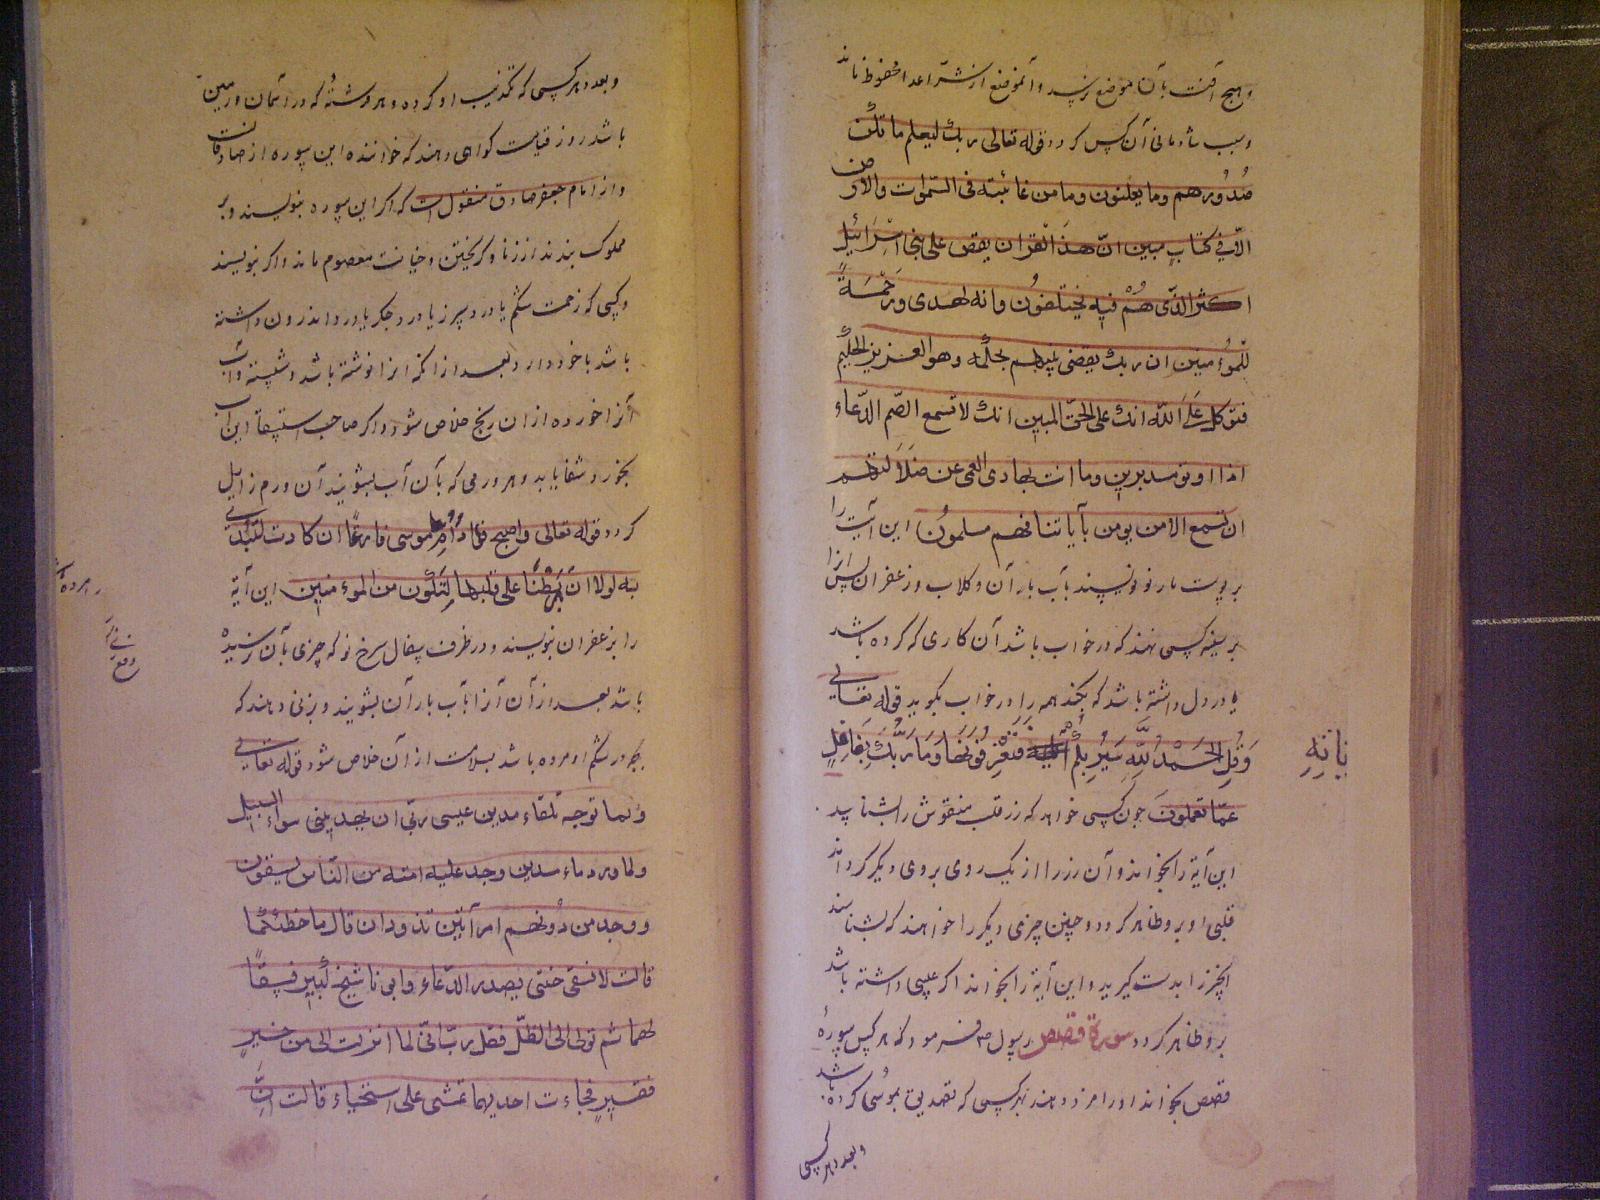 و هیچ آفت بآن موضع نرسد و آنموضع از شرّ اعدا محفوظ ماند
و سبب شادمانی آن کس کردد قوله تعالی ربك ليعلم ما تكن
صُدُورهم وما يعلنون وما من غائبته فى السّموات والارض
الّا فى كتاب مبين انّ هذا القران يقص على بنى اسْرَائيل
اكثر الذّى هُمْ فيه يختلفُون وانه لهدى ورَحْمَةً
للّموُمنين ان ربك يقضى بينهم بحكمه وهو العزيز الحليم
فتوكل عَلَى اللّه انك على الحق المبين انك لا تسمع الصّم الدّعاء
اذا اوتو مدبرين وما انت بهادى العمى عن ضلَالتهم
ان تسمع الا من يومن بآياتنا فهم مسلموُن این آیت را
بر پوست مار نو نویسند بآب باران و کلاب و زعفران پس آنرا
بر سینه کسی نهند که در خواب باشد آن کاری که کرده باشد
یا در دل داشته باشد که بکند همه را در خواب بکوید قوله تعالی
وَقُلِ الحَمْدُ لِلَّهِ سَيُرِيكُمْ فَتَعْرِفُونَهَا وَمَا رَبُّكَ بِغَافِلٍ
ایاته
عمّا تعملونَ چون کسی خواهد که زر قلب منقوش را بشناسد
این آیة را بخواند و آن زر را از یک روی بروی دیکر کرداند
قلبی او برو ظاهر کردد و چنین چیزی دیکر را خواهند که بشناسند
آنچیز را بدست کیرید و این آیة را بخواند اکر عیبی داشته باشد
برو ظاهر کردد سورة قصص رسول ص فرمود که هر کس سورهٔ
قصص بخواند او را مزد دهند بهر کسی که تصدیق بموسی کرده باشد
و بعدد هر کسی
و بعدد هر کسی که تکذیب او کرده و هر فرشتهٔ که در آسمان و زمین
باشد روز قیامت کواهی دهند که خواننده این سوره از صادقانست
و از امام جعفر صادق منقول است که اکر این سوره بنویسند و بر
مملوک بندند از زنا و کریختن و خیانت معصوم ماند و اکر بنویسند
و کسی که زحمت شکم یا درد سپرز یا درد جکر یا درد اندرون داشته
باشد با خود دارد و بعد از آنکه انرا نوشته باشد و شسته و آب
آنرا خورده از ان رنج خلاص شود و اکر صاحب استسقا این آب
بخورد شفا یابد و هر ورمی که بآن آب بشویند آن ورم زایل
کردد قوله تعالی واصبح فؤاد اُمّ موسى فارغًا ان كادت لتبدى
به لولا ان رَبَطْنَا على قلبها لِتَكُون من الموءمنين این آیة
را بزعفران بنویسند و در ظرف سفال سرخ نو که چیزی بآن نرسیده
باشد بعد از آن آنرا بآب باران بشویند و بزنی دهند که
بچه در شکم او مرده باشد بسلامت از آن خلاص شود قوله تعالی
ولما توجه تلقاء مدين عيسى ربّى ان يهدينى سواء السبيل
ولما ورد ماء مدين وجد عليه امته من النّاس يسقون
ووجد من دُونهم امرأتين تذودان قال ما خطبكما
قالت لا نسقى حتى يصدر الدّعاء وابونا شيخ كبير فسقًا
لهما ثم تولى الى الظلّ فقل ربّ انّى لما انزلت الى من خيرٍ
فقيرٍ فجاءت احديهما تمشى على استحياء قالت انَّ